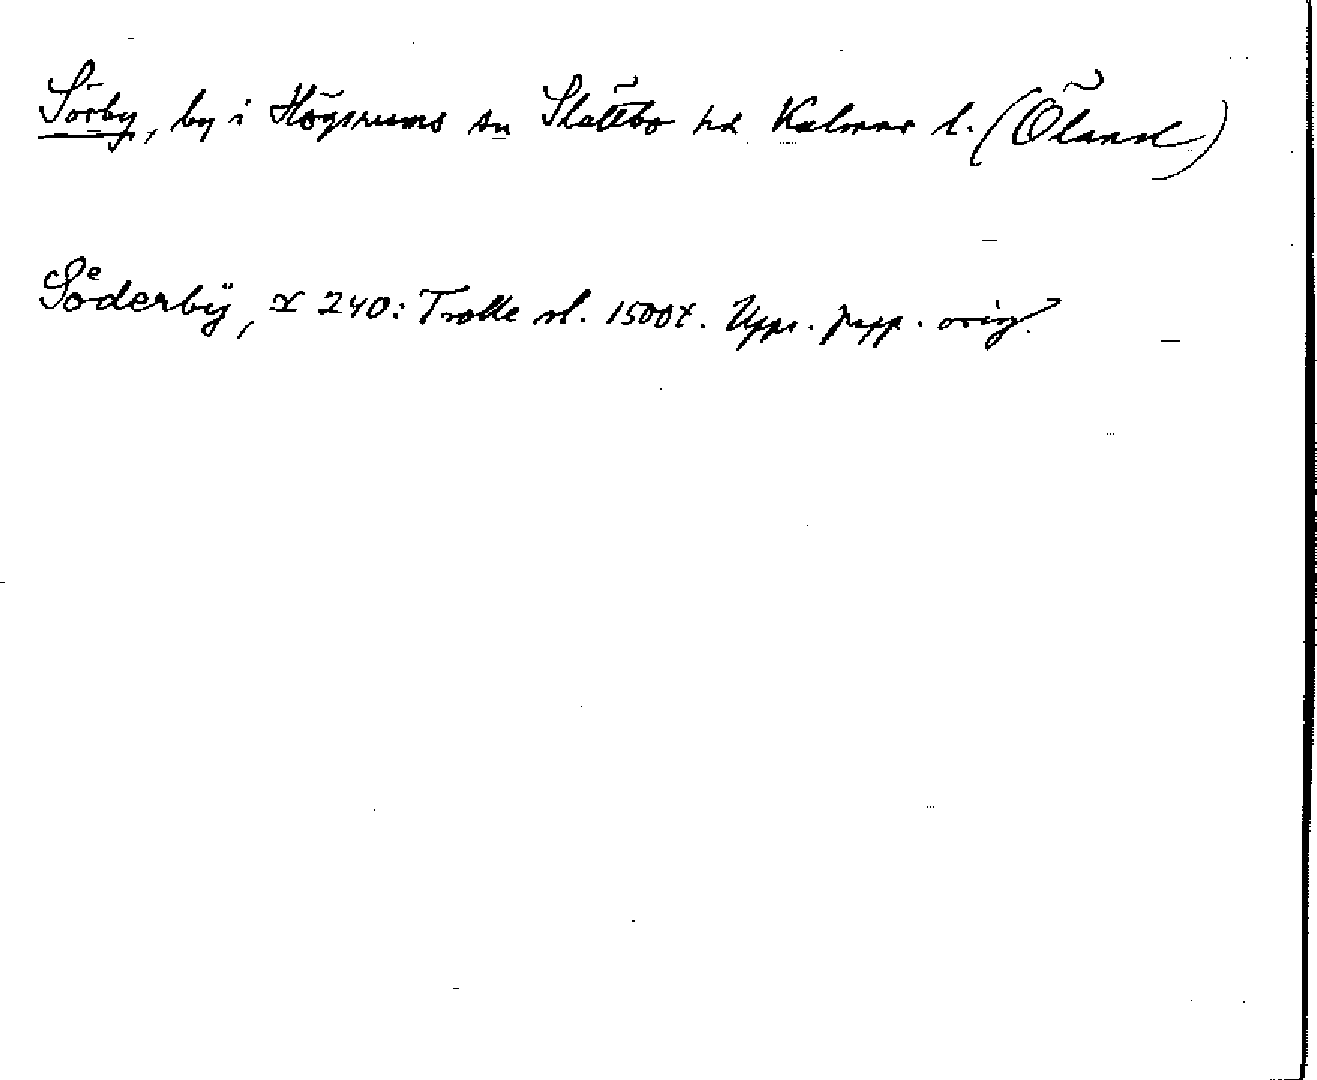 Sörby, by i Högsrums sn Slättbo hd Kalmar l. (Öland)
Soͤderbÿ, X 240: Trolle sl. 1500t. Upps. papp. orig.